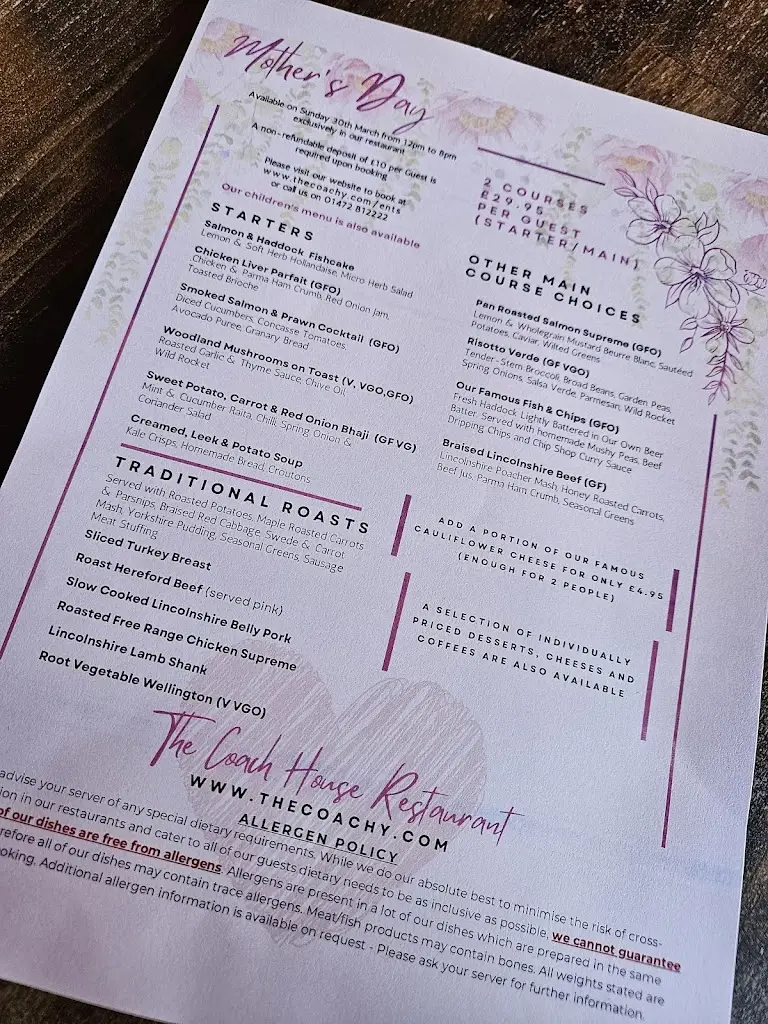 Mother's Day
Available on Sunday 30th March from 12pm to 8pm
exclusively in our restaurant
A non-refundable deposit of £10 per Guest is
required upon booking
Please visit our website to book at
www.thecoachy.com/ents
or call us on 01472 812222
Our children's menu is also available
STARTERS
Salmon & Haddock Fishcake
Lemon & Soft Herb Hollandaise, Micro Herb Salad
Chicken Liver Parfait (GFO)
Chicken & Parma Ham Crumb, Red Onion Jam,
Toasted Brioche
Smoked Salmon & Prawn Cocktail (GFO)
Diced Cucumbers, Concasse Tomatoes,
Avocado Puree, Granary Bread
Woodland Mushrooms on Toast (V, VGO,GFO)
Roasted Garlic & Thyme Sauce, Chive Oil,
Wild Rocket
Sweet Potato, Carrot & Red Onion Bhaji (GF VG)
Mint & Cucumber Raita, Chilli, Spring Onion &
Coriander Salad
Creamed, Leek & Potato Soup
Kale Crisps, Homemade Bread, Croutons
TRADITIONAL ROASTS
Served with Roasted Potatoes, Maple Roasted Carrots
& Parsnips, Braised Red Cabbage, Swede & Carrot
Mash, Yorkshire Pudding, Seasonal Greens, Sausage
Meat Stuffing
Sliced Turkey Breast
Roast Hereford Beef (served pink)
Slow Cooked Lincolnshire Belly Pork
Roasted Free Range Chicken Supreme
Lincolnshire Lamb Shank
Root Vegetable Wellington (V VGO)
2 COURSES
£29.95
PER GUEST
(STARTER/MAIN)
OTHER MAIN
COURSE CHOICES
Pan Roasted Salmon Supreme (GFO)
Lemon & Wholegrain Mustard Beurre Blanc, Sautéed
Potatoes, Caviar, Wilted Greens
Risotto Verde (GF VGO)
Tender-Stem Broccoli, Broad Beans, Garden Peas,
Spring Onions, Salsa Verde, Parmesan, Wild Rocket
Our Famous Fish & Chips (GFO)
Fresh Haddock Lightly Battered in Our Own Beer
Batter, Served with homemade Mushy Peas, Beef
Dripping Chips and Chip Shop Curry Sauce
Braised Lincolnshire Beef (GF)
Lincolnshire Poacher Mash, Honey Roasted Carrots,
Beef Jus, Parma Ham Crumb, Seasonal Greens
ADD A PORTION OF OUR FAMOUS
CAULIFLOWER CHEESE FOR ONLY £4.95
(ENOUGH FOR 2 PEOPLE)
A SELECTION OF INDIVIDUALLY
PRICED DESSERTS, CHEESES AND
COFFEES ARE ALSO AVAILABLE
The Coach House Restaurant
WWW.THECOACHY.COM
ALLERGEN POLICY
advise your server of any special dietary requirements. While we do our absolute best to minimise the risk of cross-
in our restaurants and cater to all of our guests dietary needs to be as inclusive as possible, we cannot guarantee
of our dishes are free from allergens. Allergens are present in a lot of our dishes which are prepared in the same
all of our dishes may contain trace allergens. Meat/fish products may contain bones. All weights stated are
Additional allergen information is available on request - Please ask your server for further information.